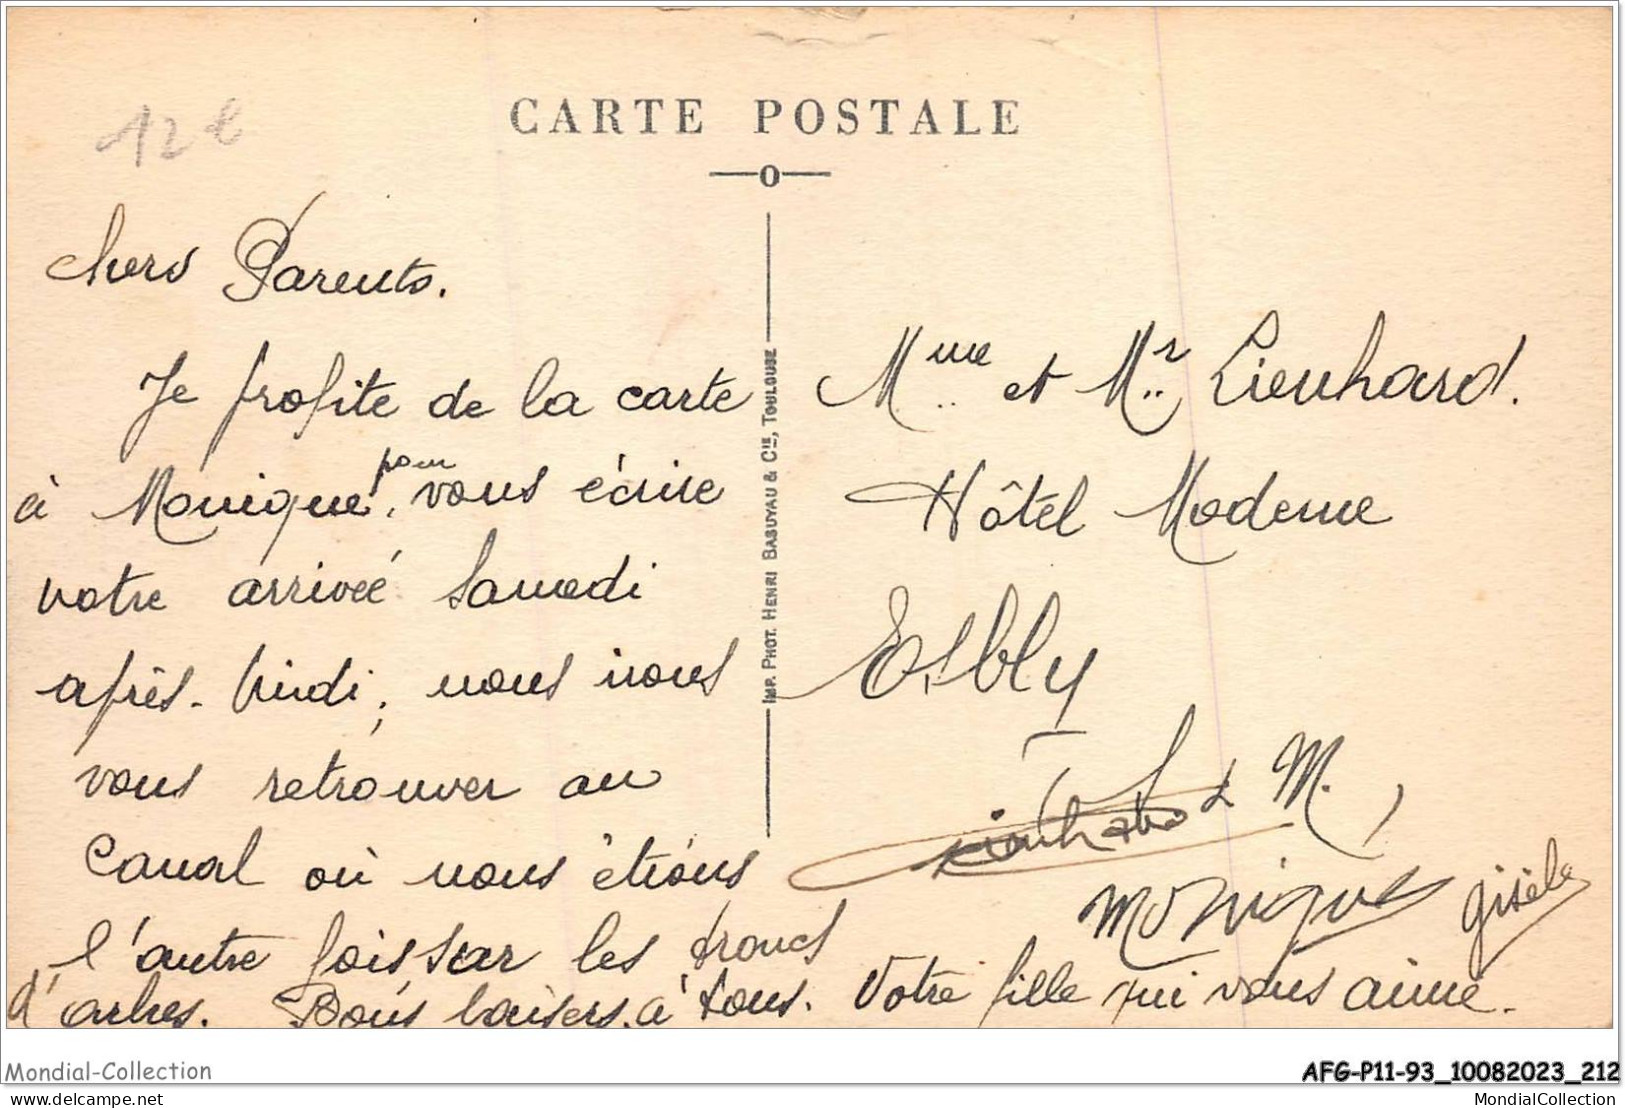 12 €
CARTE POSTALE
Chers Parents.
Je profite de la carte
à Monique, pour vous écrire
votre arrivée Samedi
après-Midi, nous irons
vous retrouver au
Canal où nous étions
l'autre fois sur les troncs
d'arbres. Bons baisers à tous. Votre fille qui vous aime.
IMP. PHOT. HENRI BASUYAU & CIE, TOULOUSE
Mme et Mr Lienhard.
Hôtel Moderne
Esbly
& M.
Monique Gisèle
Mondial-Collection
AFG-P11-93_10082023_212
delcampe.net
MondialCollection